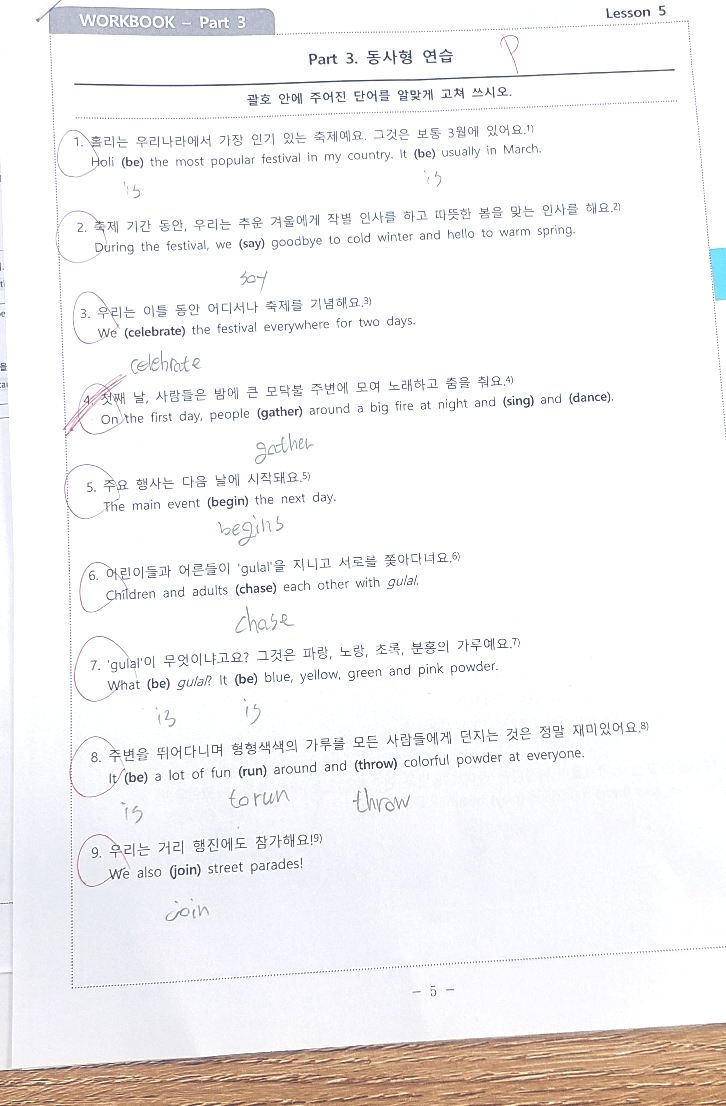 WORKBOOK – Part 3
Lesson 5
Part 3. 동사형 연습
괄호 안에 주어진 단어를 알맞게 고쳐 쓰시오.
1. 홀리는 우리나라에서 가장 인기 있는 축제예요. 그것은 보통 3월에 있어요.1)
Holi (be) the most popular festival in my country. It (be) usually in March.
is is
2. 축제 기간 동안, 우리는 추운 겨울에게 작별 인사를 하고 따뜻한 봄을 맞는 인사를 해요.2)
During the festival, we (say) goodbye to cold winter and hello to warm spring.
say
3. 우리는 이틀 동안 어디서나 축제를 기념해요.3)
We (celebrate) the festival everywhere for two days.
celebrate
4. 첫째 날, 사람들은 밤에 큰 모닥불 주변에 모여 노래하고 춤을 춰요.4)
On the first day, people (gather) around a big fire at night and (sing) and (dance).
gather
5. 주요 행사는 다음 날에 시작돼요.5)
The main event (begin) the next day.
begins
6. 어린이들과 어른들이 'gulal'을 지니고 서로를 쫓아다녀요.6)
Children and adults (chase) each other with gulal.
chase
7. 'gulal'이 무엇이냐고요? 그것은 파랑, 노랑, 초록, 분홍의 가루예요.7)
What (be) gulal? It (be) blue, yellow, green and pink powder.
is is
8. 주변을 뛰어다니며 형형색색의 가루를 모든 사람들에게 던지는 것은 정말 재미있어요.8)
It (be) a lot of fun (run) around and (throw) colorful powder at everyone.
is to run throw
9. 우리는 거리 행진에도 참가해요!9)
We also (join) street parades!
join
– 5 –